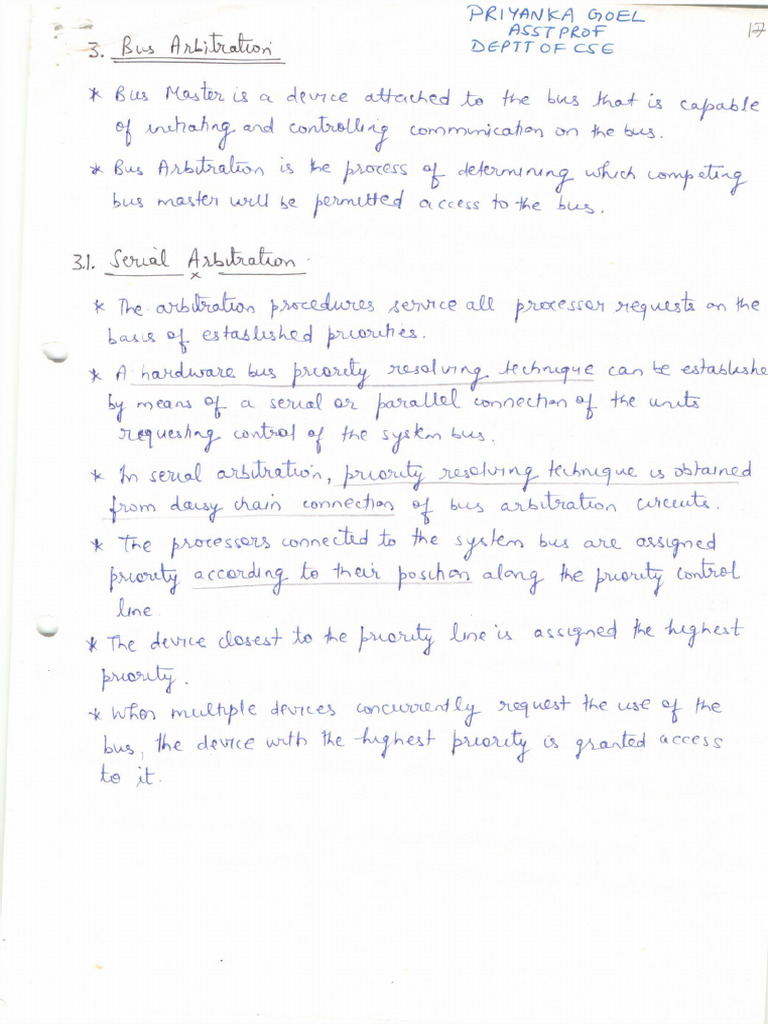 PRIYANKA GOEL
ASST PROF
DEPTT OF CSE
17
3. Bus Arbitration
* Bus Master is a device attached to the bus that is capable
of initiating and controlling communication on the bus.
* Bus Arbitration is the process of determining which competing
bus master will be permitted access to the bus.
3.1. Serial Arbitration
* The arbitration procedures service all processor requests on the
basis of established priorities.
* A hardware bus priority resolving technique can be establishe
by means of a serial or parallel connection of the units
requesting control of the system bus.
* In serial arbitration, priority resolving technique is obtained
from daisy chain connection of bus arbitration circuits.
* The processors connected to the system bus are assigned
priority according to their position along the priority control
line.
* The device closest to the priority line is assigned the highest
priority.
* When multiple devices concurrently request the use of the
bus, the device with the highest priority is granted access
to it.